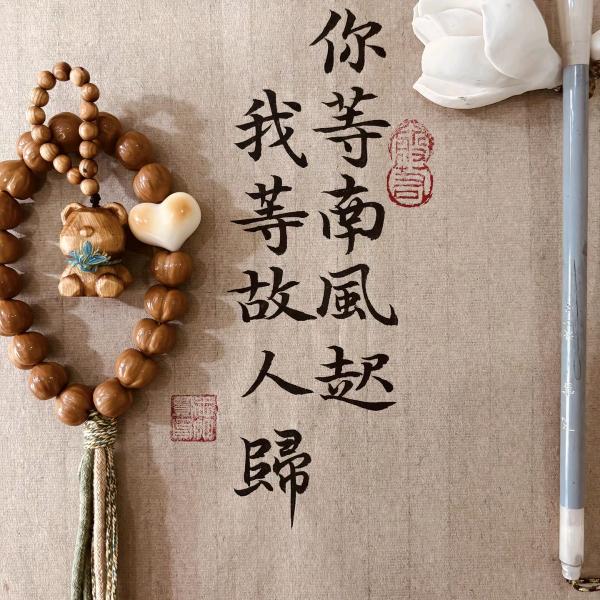 你等南風起
我等故人歸